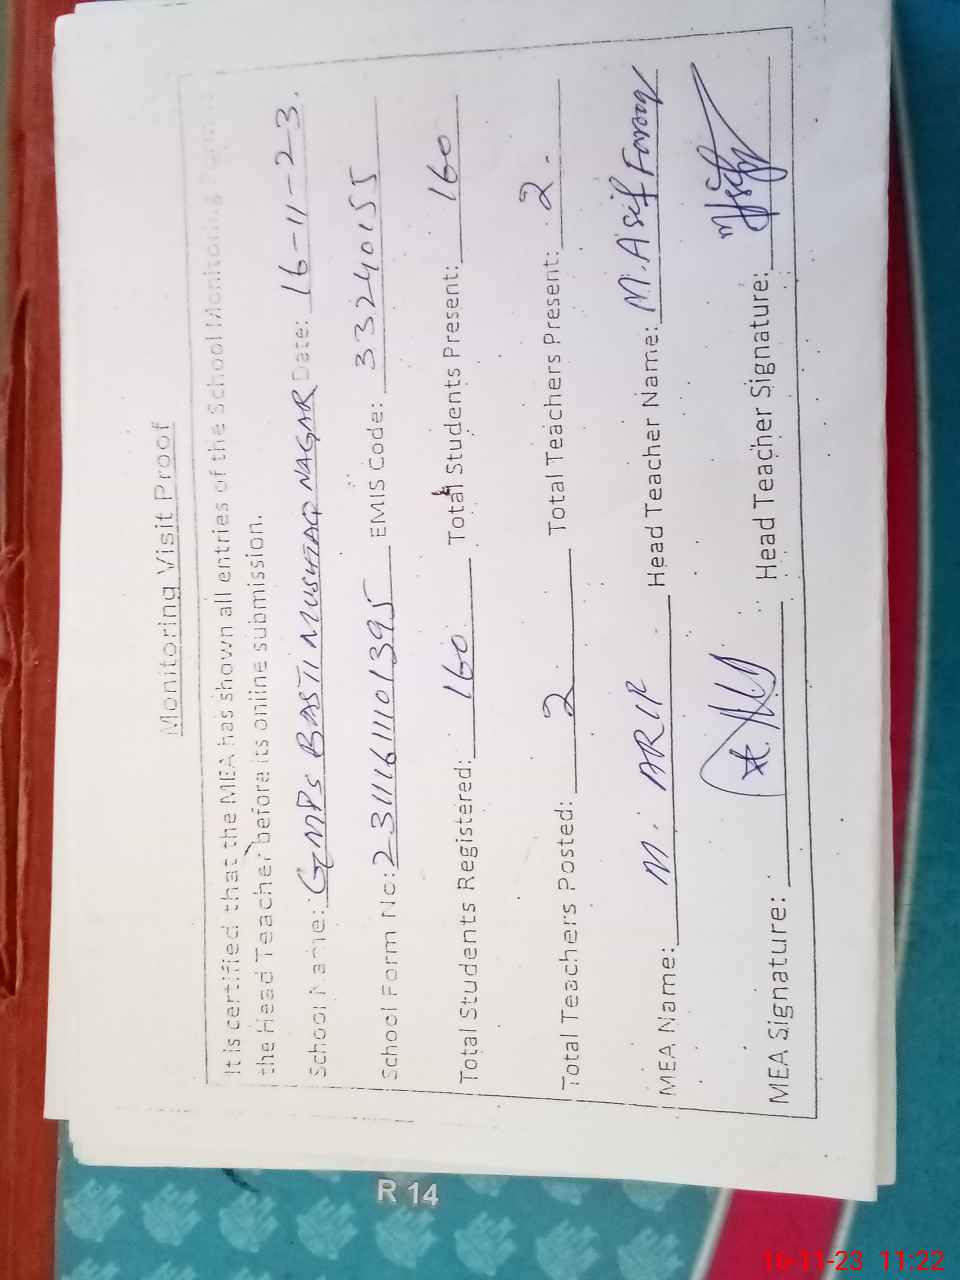 Monitoring Visit Proof
It is certified that the MEA has shown all entries of the School Monitoring Form
the Head Teacher before its online submission.
School Name: GMPS BASTI MUSHTAQ NAGAR Date: 16-11-23.
School Form No: 2311161101395 EMIS Code: 33240155
Total Students Registered: 160 Total Students Present: 160
Total Teachers Posted: 2 Total Teachers Present: 2.
MEA Name: M. ARIF Head Teacher Name: M. Asif
MEA Signature: Head Teacher Signature:
R 14
16-11-23 11:22